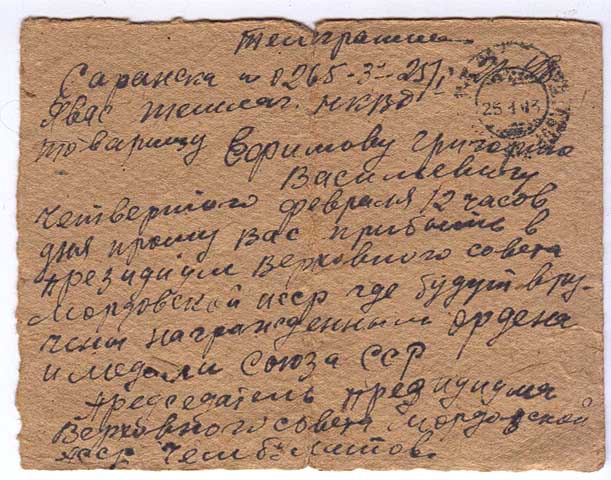 Телеграмма
Саранска № 0265-3-25/1
Явас Темлаг. НКВД
25.1.43
товарищу Ефимову Григорию
Васильевичу
Четвертого февраля 12 часов
дня прошу Вас прибыть в
президиум Верховного совета
Мордовской АССР где будут вру-
чены награжденным ордена
и медали Союза ССР
Председатель президиума
Верховного совета Мордовской
АССР Чембулатов.